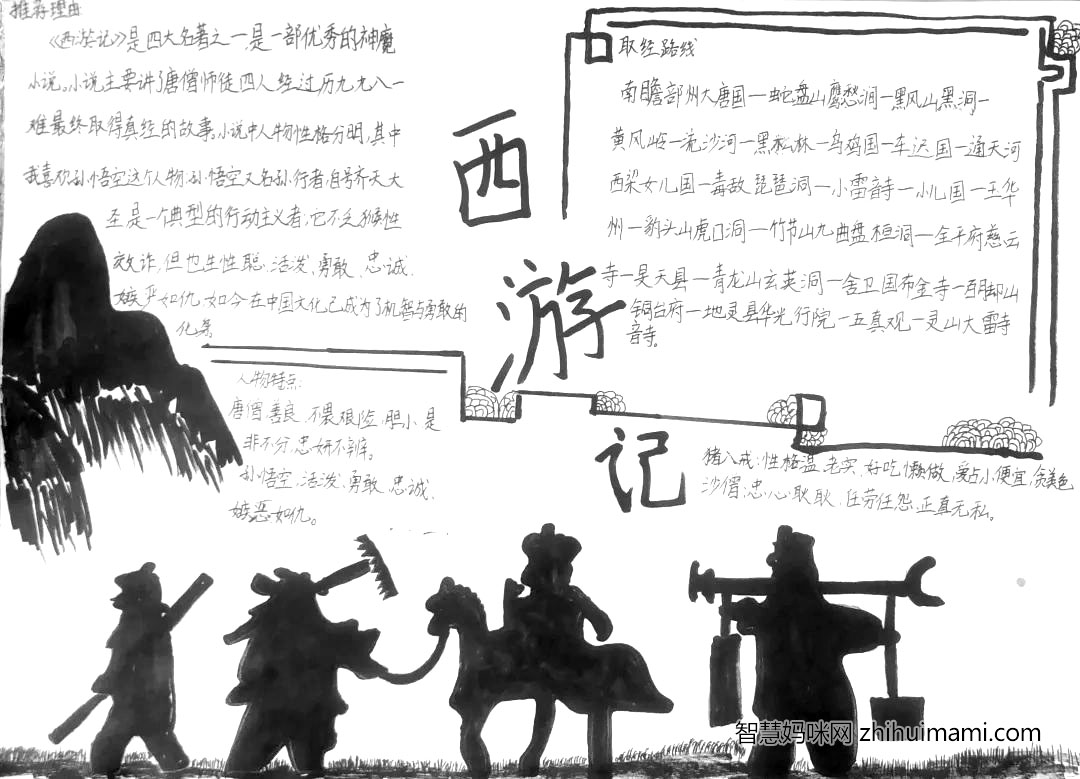 推荐理由
《西游记》是四大名著之一,是一部优秀的神魔
小说。小说主要讲了唐僧师徒四人经过历九九八一
难最终取得真经的故事。小说中人物性格分明,其中
我喜欢孙悟空这个人物.孙悟空又名孙行者,自号齐天大
圣是一个典型的行动主义者,它不乏猴性
狡诈,但也生性聪、活泼、勇敢、忠诚、
嫉严如仇,如今在中国文化已成为了机智与勇敢的
化身。
西
游
记
取经路线
南瞻部州大唐国一蛇盘山鹰愁涧一黑风山黑洞一
黄风岭一流沙河一黑松林一乌鸡国一车迟国一通天河
西梁女儿国一毒敌琵琶洞一小雷音寺一小儿国一玉华
州一豹头山虎口洞一竹节山九曲盘桓洞一金平府慈云
寺一旻天县一青龙山玄英洞一舍卫国布金寺一百脚山
铜台府一地灵县华光行院一五真观一灵山大雷寺
音寺。
人物特点:
唐僧善良、不畏艰险、胆小、是
非不分,忠奸不辨。
孙悟空、活泼、勇敢、忠诚、
嫉恶如仇。
猪八戒:性格温、老实、好吃懒做,爱占小便宜,贪美色
沙僧:忠心耿耿、任劳任怨、正直无私。
智慧妈咪网 zhihuimami.com